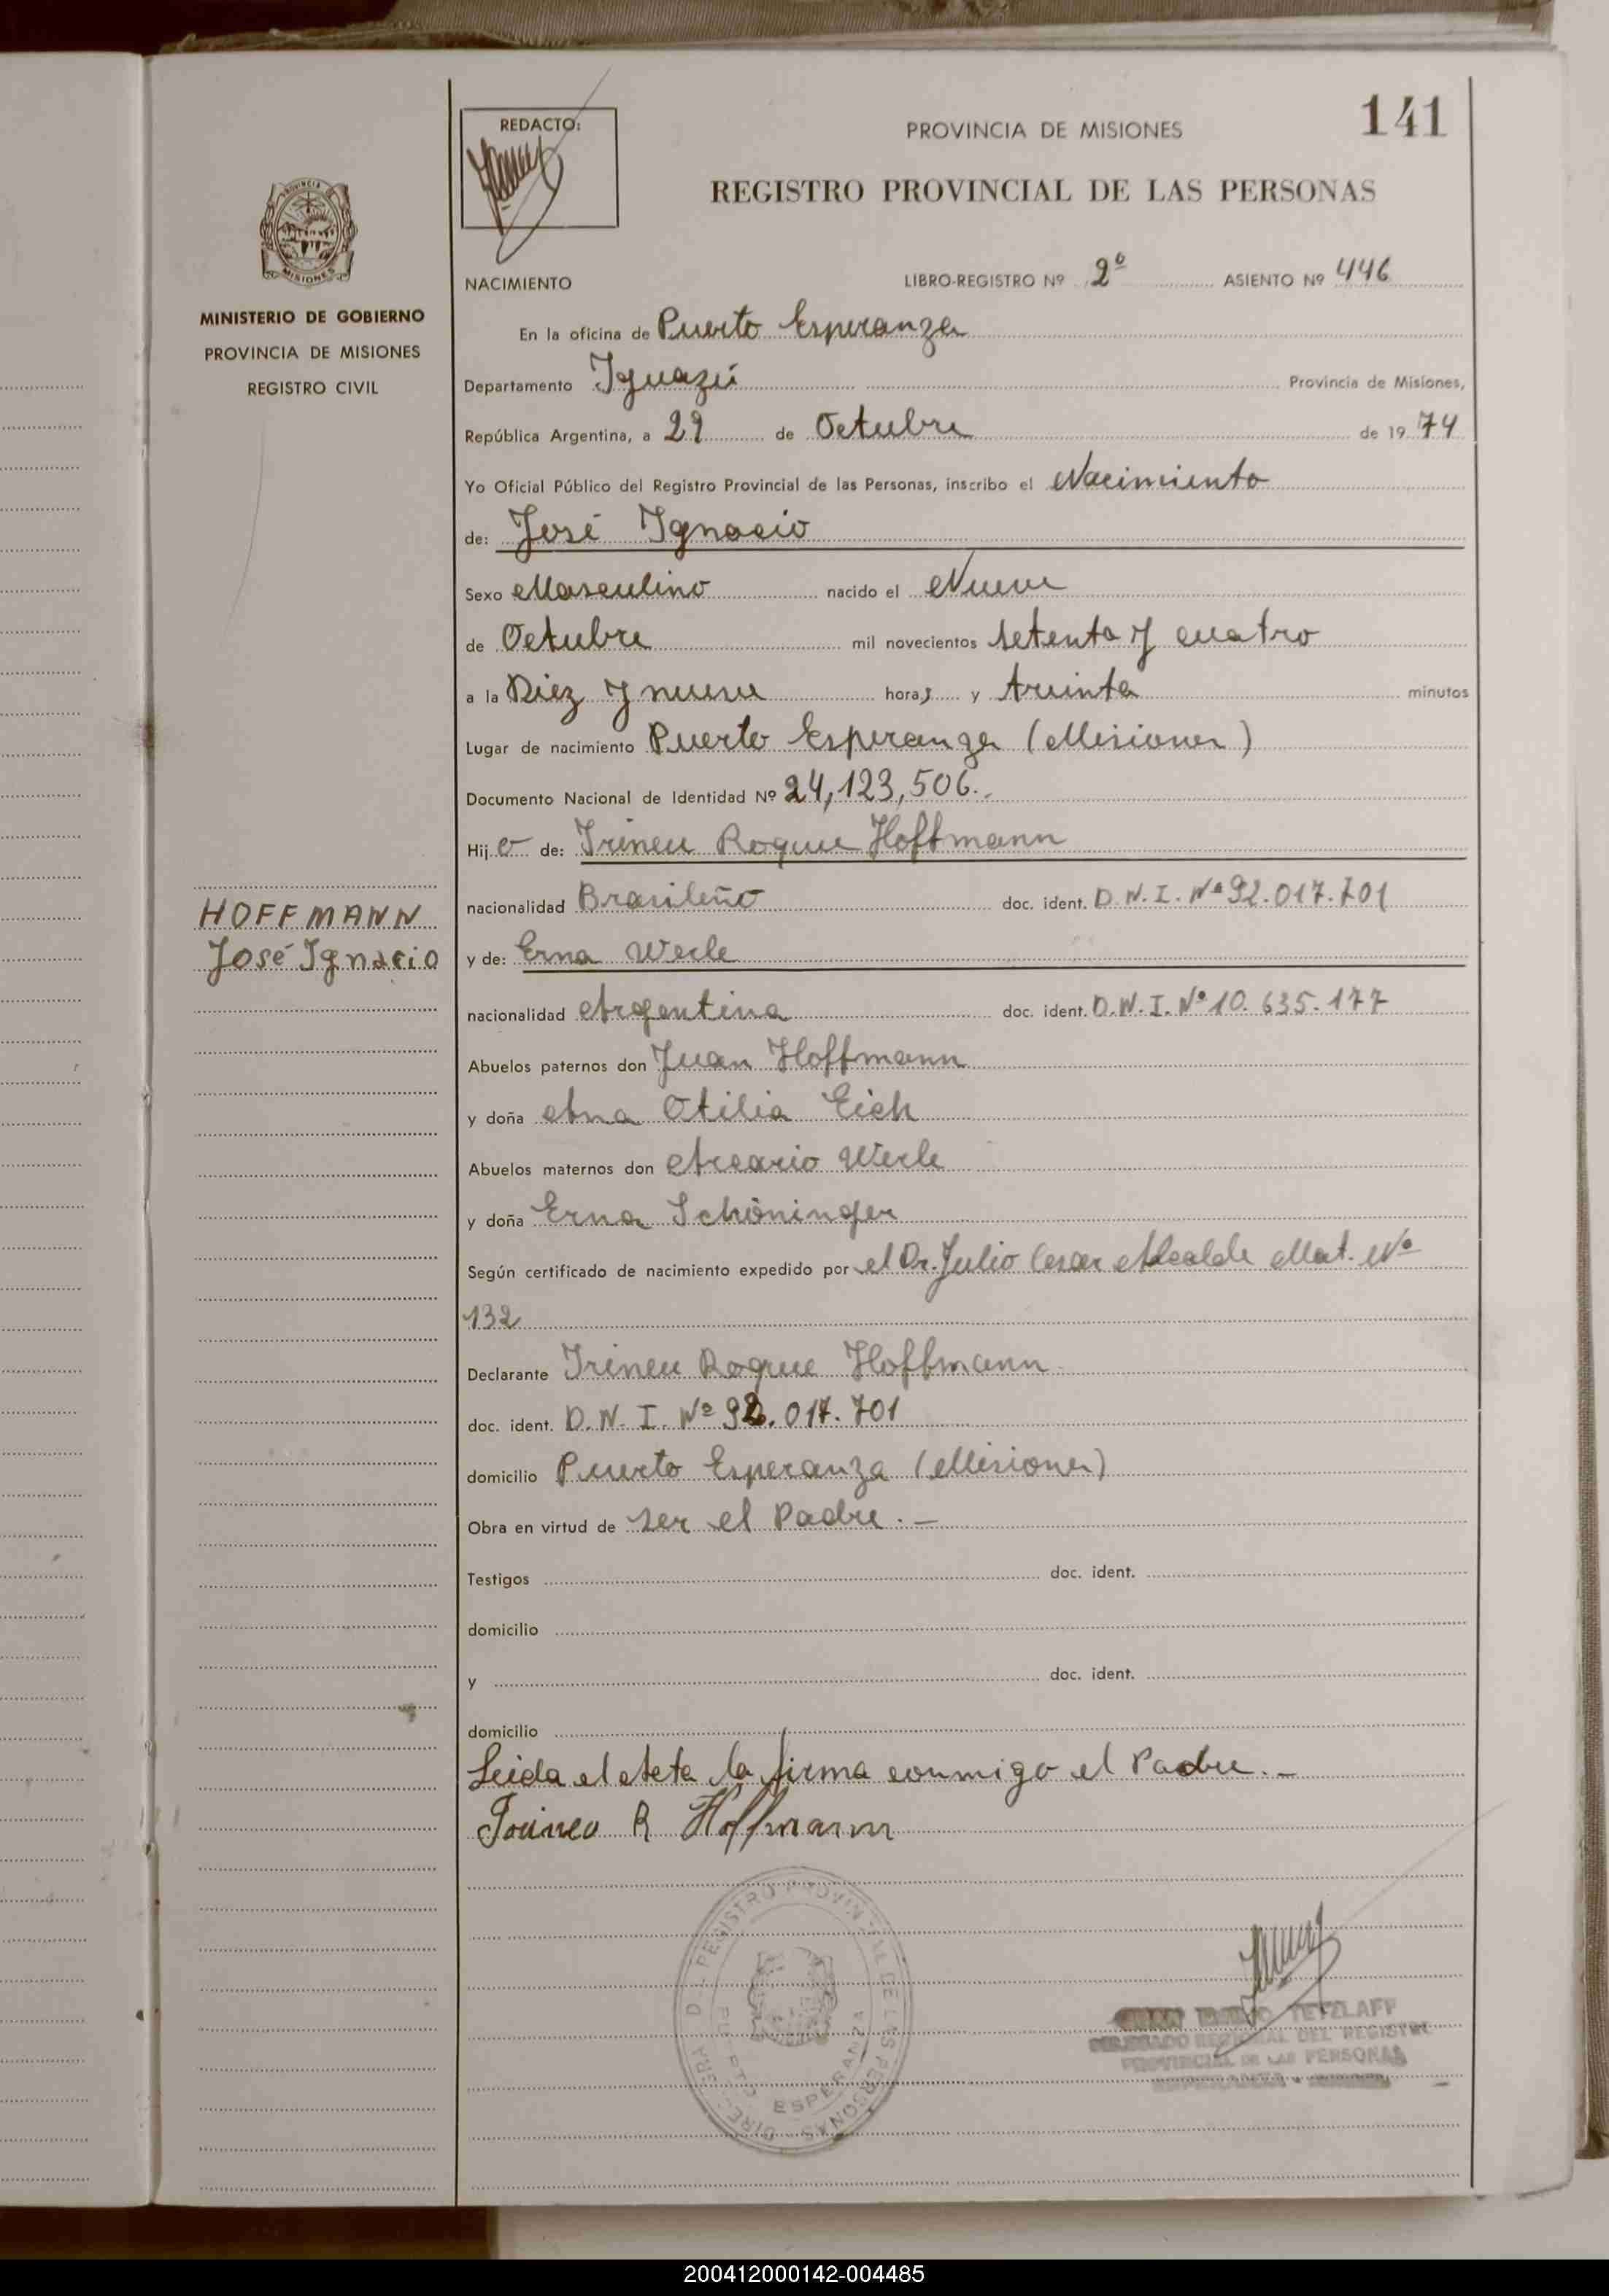 141
REDACTO:
PROVINCIA DE MISIONES
REGISTRO PROVINCIAL DE LAS PERSONAS
MISIONES
MINISTERIO DE GOBIERNO
PROVINCIA DE MISIONES
REGISTRO CIVIL
NACIMIENTO LIBRO-REGISTRO Nº 2º ASIENTO Nº 446
En la oficina de Puerto Esperanza
Departamento Iguazú Provincia de Misiones,
República Argentina, a 29 de Octubre de 19 74
Yo Oficial Público del Registro Provincial de las Personas, inscribo el Nacimiento
de: José Ignacio
Sexo Masculino nacido el Nueve
de Octubre mil novecientos setenta y cuatro
a la Diez y nueve horas y treinta minutos
Lugar de nacimiento Puerto Esperanza (Misiones)
Documento Nacional de Identidad Nº 24,123,506.
Hijo de: Irineu Roque Hoffmann
HOFFMANN
José Ignacio
nacionalidad Brasileño doc. ident. D.N.I. Nº 92.017.701
y de: Erna Werle
nacionalidad Argentina doc. ident. D.N.I. Nº 10.635.177
Abuelos paternos don Juan Hoffmann
y doña Ana Otilia Eich
Abuelos maternos don Arcario Werle
y doña Erna Schöninger
Según certificado de nacimiento expedido por el Dr. Julio Cesar Alcalde Mat. Nº
132
Declarante Irineu Roque Hoffmann
doc. ident. D.N.I. Nº 92.017.701
domicilio Puerto Esperanza (Misiones)
Obra en virtud de ser el Padre.-
Testigos doc. ident.
domicilio
y doc. ident.
domicilio
Leida el Acta la firma conmigo el Padre.-
Irineo R Hoffmann
REGISTRO PROVINCIAL DE LAS PERSONAS
PTO ESPERANZA
TETZLAFF
DEL REGISTRO
PROVINCIAL DE LAS PERSONAS
200412000142-004485